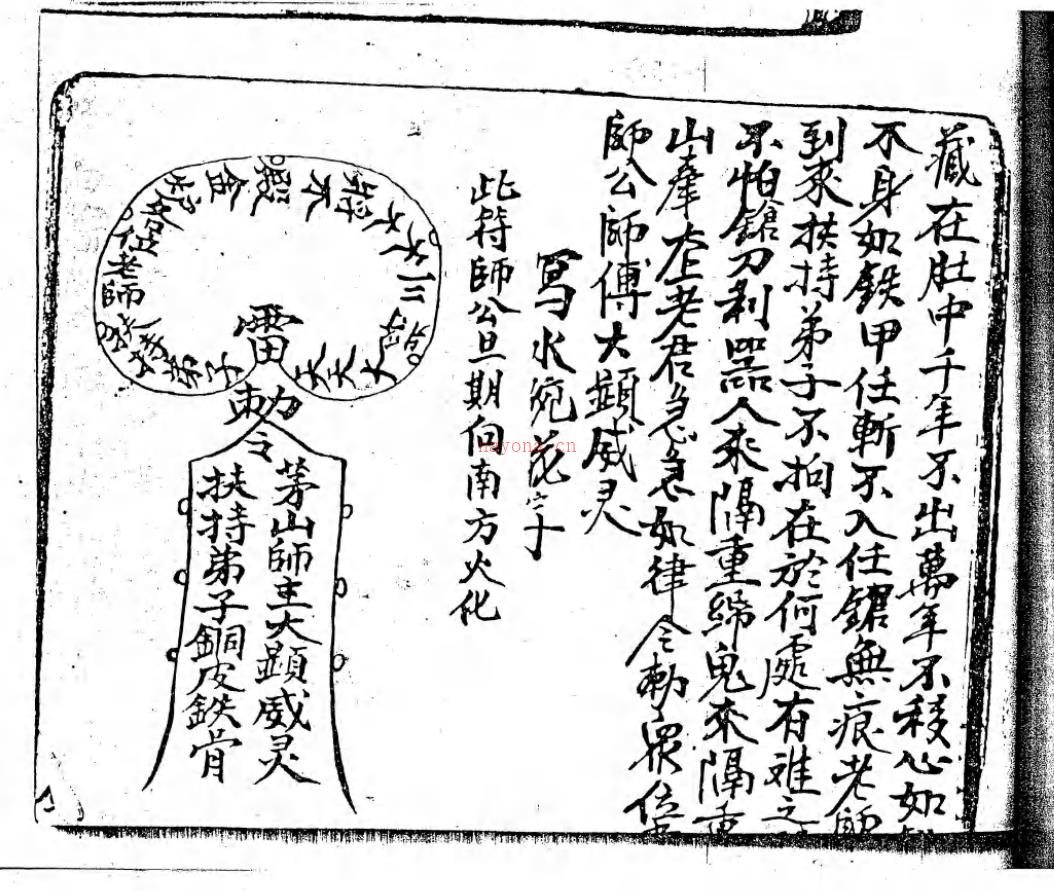 藏在肚中千年不出萬年不移心如
不身如鉄甲任斬不入任鎗無痕老師
到來扶持弟子不拘在於何處有难之
不怕鎗刀利器人來隔重綿鬼來隔重
山奉太上老君急急如律令勅眾位
師公師傅大顯威灵
寫水碗花字
此符師公旦期向南方火化
雷
勅令
茅山師主大顯威灵
扶持弟子銅皮鉄骨
老師
弟子
nayona.cn